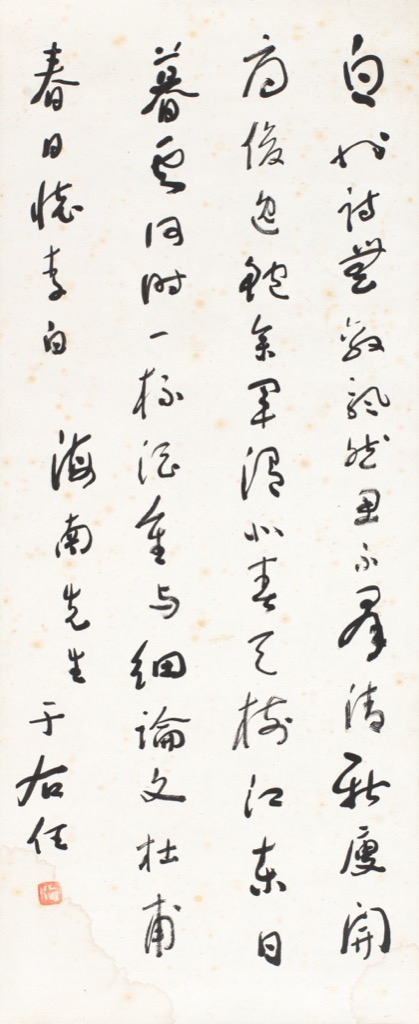 白也詩無敵飄然思不羣清新庾開
府俊逸鮑參軍渭北春天樹江東日
暮雲何時一樽酒重与細論文杜甫
春日懷李白 海南先生 于右任